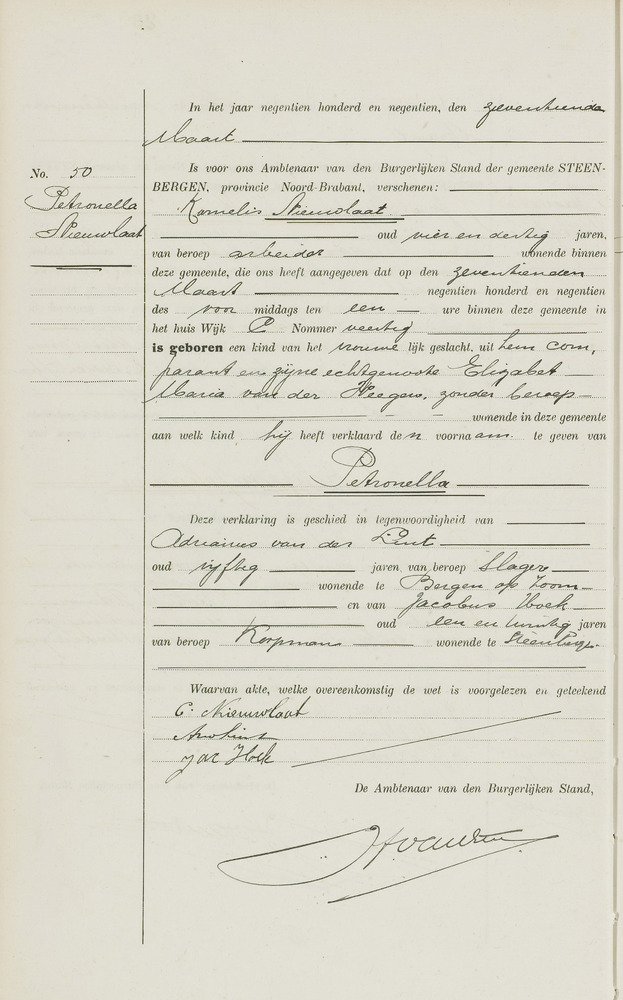 In het jaar negentien honderd en negentien, den zeventienden
Maart
No. 50
Petronella
Nieuwlaat
Is voor ons Ambtenaar van den Burgerlijken Stand der gemeente STEEN-
BERGEN, provincie Noord-Brabant, verschenen:
Kornelis Nieuwlaat
oud vier en dertig jaren,
van beroep arbeider wonende binnen
deze gemeente, die ons heeft aangegeven dat op den zeventienden
Maart negentien honderd en negentien
des voor middags ten een ure binnen deze gemeente in
het huis Wijk Nommer veertig
is geboren een kind van het vrouwe lijk geslacht, uit hem com,
parant en zijne echtgenoote Elizabet
Maria van der Heegen, zonder beroep
wonende in deze gemeente
aan welk kind hij heeft verklaard den voornaam te geven van
Petronella
Deze verklaring is geschied in tegenwoordigheid van
Adrianus van der Lint
oud vijftig jaren, van beroep Slager
wonende te Bergen op Zoom
en van Jacobus Hoek
oud een en twintig jaren
van beroep Koopman wonende te Steenbergen
Waarvan akte, welke overeenkomstig de wet is voorgelezen en geteekend
C. Nieuwlaat
Jac Hoek
De Ambtenaar van den Burgerlijken Stand,